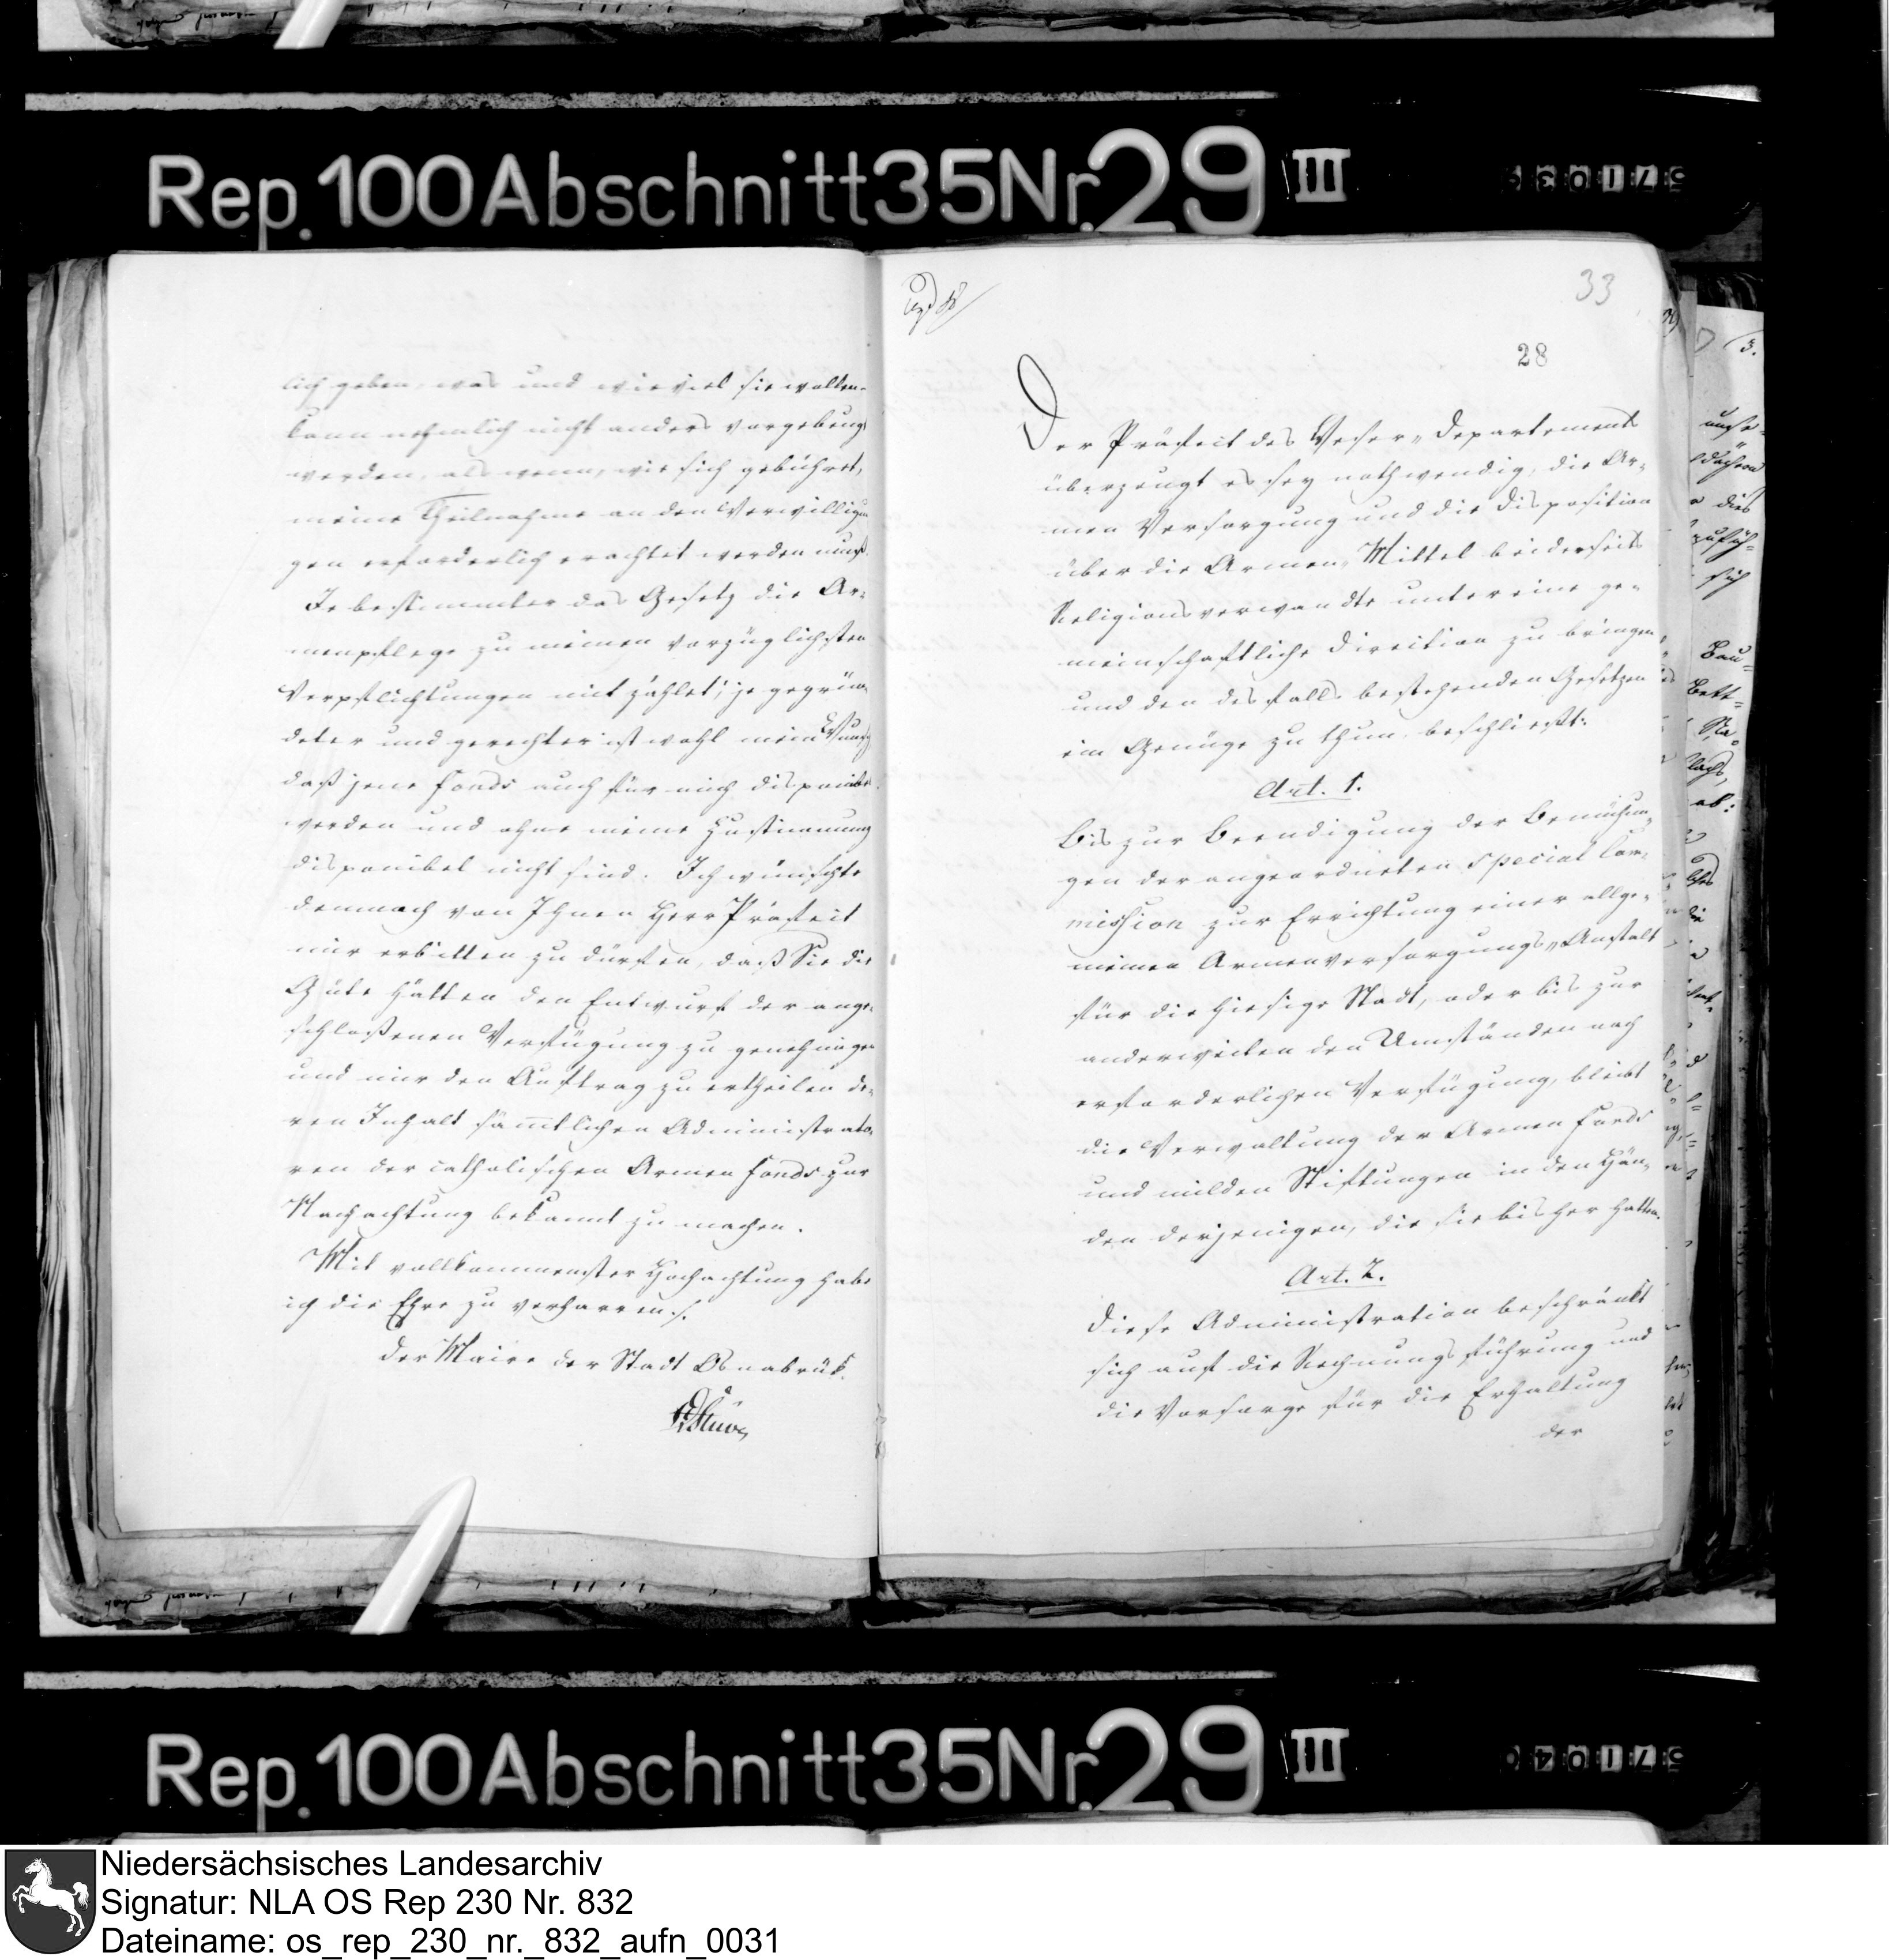 Rep. 100 Abschnitt 35 Nr. 29 III
lich geben, was und wieviel sie wollen.
kann nehmlich nicht anders vorgebeugt
werden, als wenn, wie sich gebühret,
meine Theilnahme an den Verwilligun
gen erforderlich erachtet werden muß.
Je bestimmter das Gesetz die Ar-
menpflege zu meinen vorzüglichsten
Verpflichtungen mit zählet; je gegrün-
deter und gerechter ist wohl mein Wunsch
daß jene Fonds auch für mich disponibel
werden und ohne meine Zustimmung
disponibel nicht sind. Ich wünschte
demnach von Ihnen Herr Präfect
mir erbitten zu dürfen, daß Sie die
Güte hätten den Entwurf der ange-
schloßenen Verfügung zu genehmigen
und mir den Auftrag zu ertheilen de-
ren Inhalt sämtlichen Administrato-
ren der catholischen Armen fonds zur
Nachachtung bekannt zu machen.
Mit vollkommenster Hochachtung habe
ich die Ehre zu verharren
der Maire der Stadt Osnabrük.
Stüve
33
28
Der Präfect des Weser-Departements
überzeugt es sey nothwendig, die Ar-
men Versorgung und die Disposition
über die Armen-Mittel beiderseits
Religionsverwandte unter eine ge-
meinschaftliche Direction zu bringen,
und den desfalls bestehenden Gesetzen
ein Genüge zu thun, beschließt:
Art. 1.
Bis zur Beendigung der Bemühun-
gen der angeordneten special Com-
mission zur Errichtung einer allge-
meinen Armenversorgungs-Anstalt
für die hiesige Stadt, oder bis zur
anderweiten den Umständen nach
erforderlichen Verfügung, bleibt
die Verwaltung der Armen fonds
und milden Stiftungen in den Hän-
den derjenigen, die sie bisher hatten.
Art. 2.
Diese Administration beschränkt
sich auf die Rechnungsführung und
die Vorsorge für die Erhaltung
der
Rep. 100 Abschnitt 35 Nr. 29 III
Niedersächsisches Landesarchiv
Signatur: NLA OS Rep 230 Nr. 832
Dateiname: os_rep_230_nr._832_aufn_0031